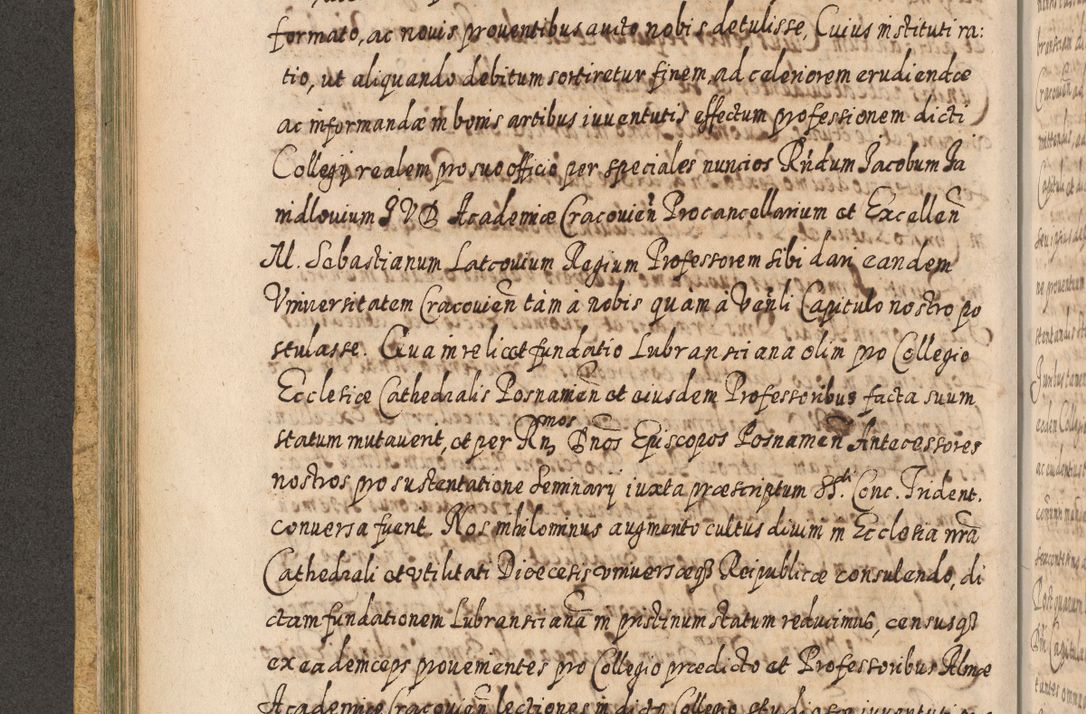 formato, ac novis proventibus aucto nobis detulisse, Cuius instituti ra:
tio, ut aliquando debitum sortiretur finem, ad celeriorem erudiendæ
ac informandæ in bonis artibus iuventutis effectum professionem dicti
Collegij realem pro suo officio per speciales nuncios Rńdum Jacobum Ja
nidlovium JVD Academiæ Cracovień Procancellarium et Excelleń
M. Sebastianum Latcovium Regium Professorem sibi dari eandem
Vniversitatem Cracovień tàm à nobis quam a Veńli Capitulo nostro po
stulasse. Qua in re licet fundatio Lubransciana olim pro Collegio
Ecclesiæ Cathedralis Posnanień et eiusdem Professoribus facta suum
statum mutaverit, et per Rmos Dnos Episcopos Posnanień Antecessores
nostros pro sustentatione Seminarij iuxta præscriptum SSti. Conc. Trident.
conversa fuerit. Nos nihilominus augmento cultus divini in Ecclesia nrã
Cathedrali et vtilitati Diœcesis vniversæq3 Reipublicæ consulendo, di
ctam fundationem Lubranscianã in pristinum statum reducimus, censusq3
ex eadem ceps provenientes pro Collegio prædicto et Professoribus Almæ
Academiæ Cracovień lectiones in dicto Collegio